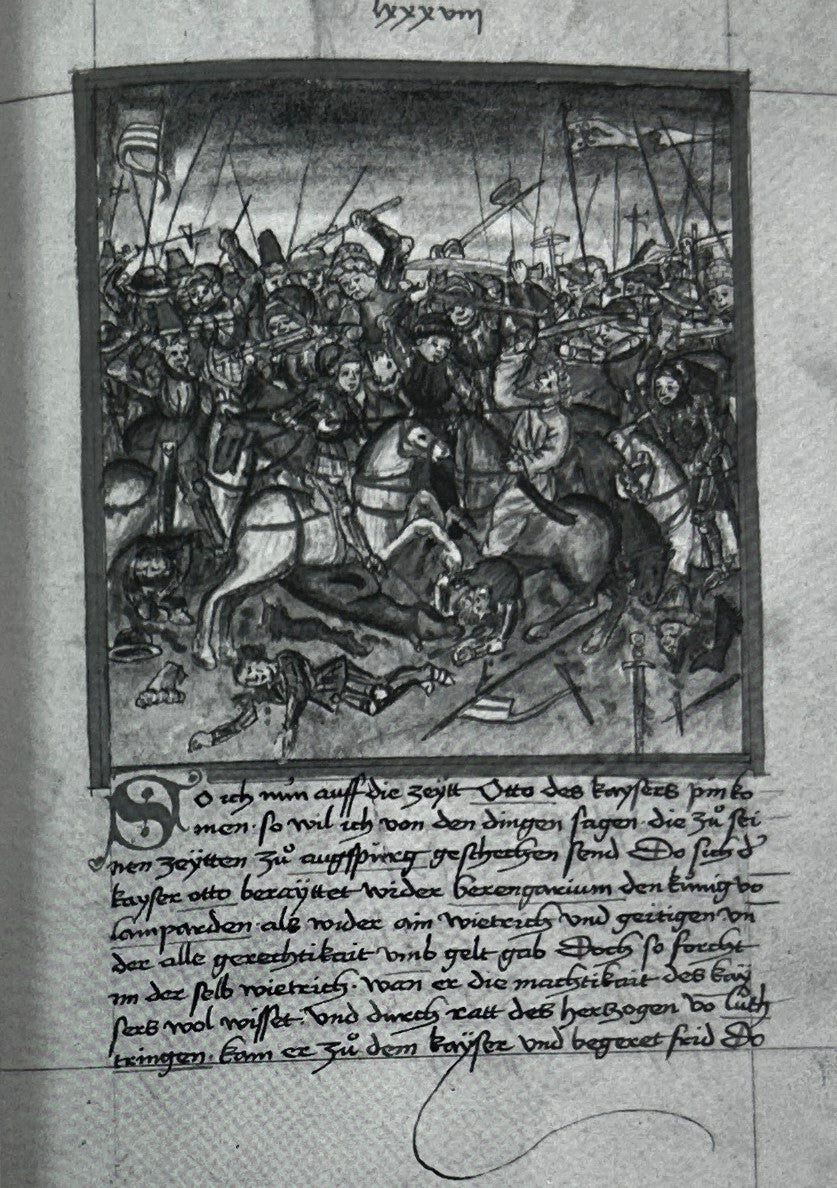 lxxxxviii
So ich nun auff die zeÿtt Otto des kaÿsers pin ko
men · so wil ich von den dingen sagen · die zů sei
nen zeÿtten zů augspurg geschechen send Do sich d'
kayser otto beraÿttet wider berengarium den künig vō
lamparden · als wider ain wietrich vnd geitigen vn̄
der alle gerechtikait vmb gelt gab Doch so forcht
im der selb wietrich · wan er die machtikait des kaÿ
sers wol wisset · vnd durch ratt des herczogen vō luth
tringen · kam er zů dem kaÿser vnd begeret frid Do